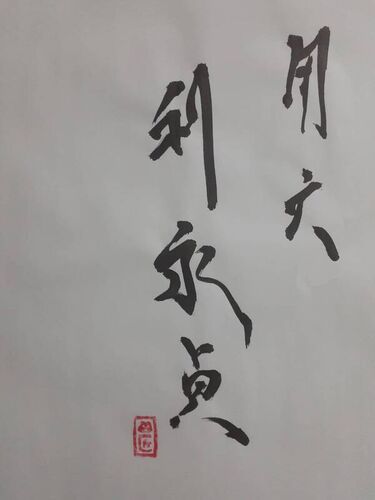 用六
利永貞